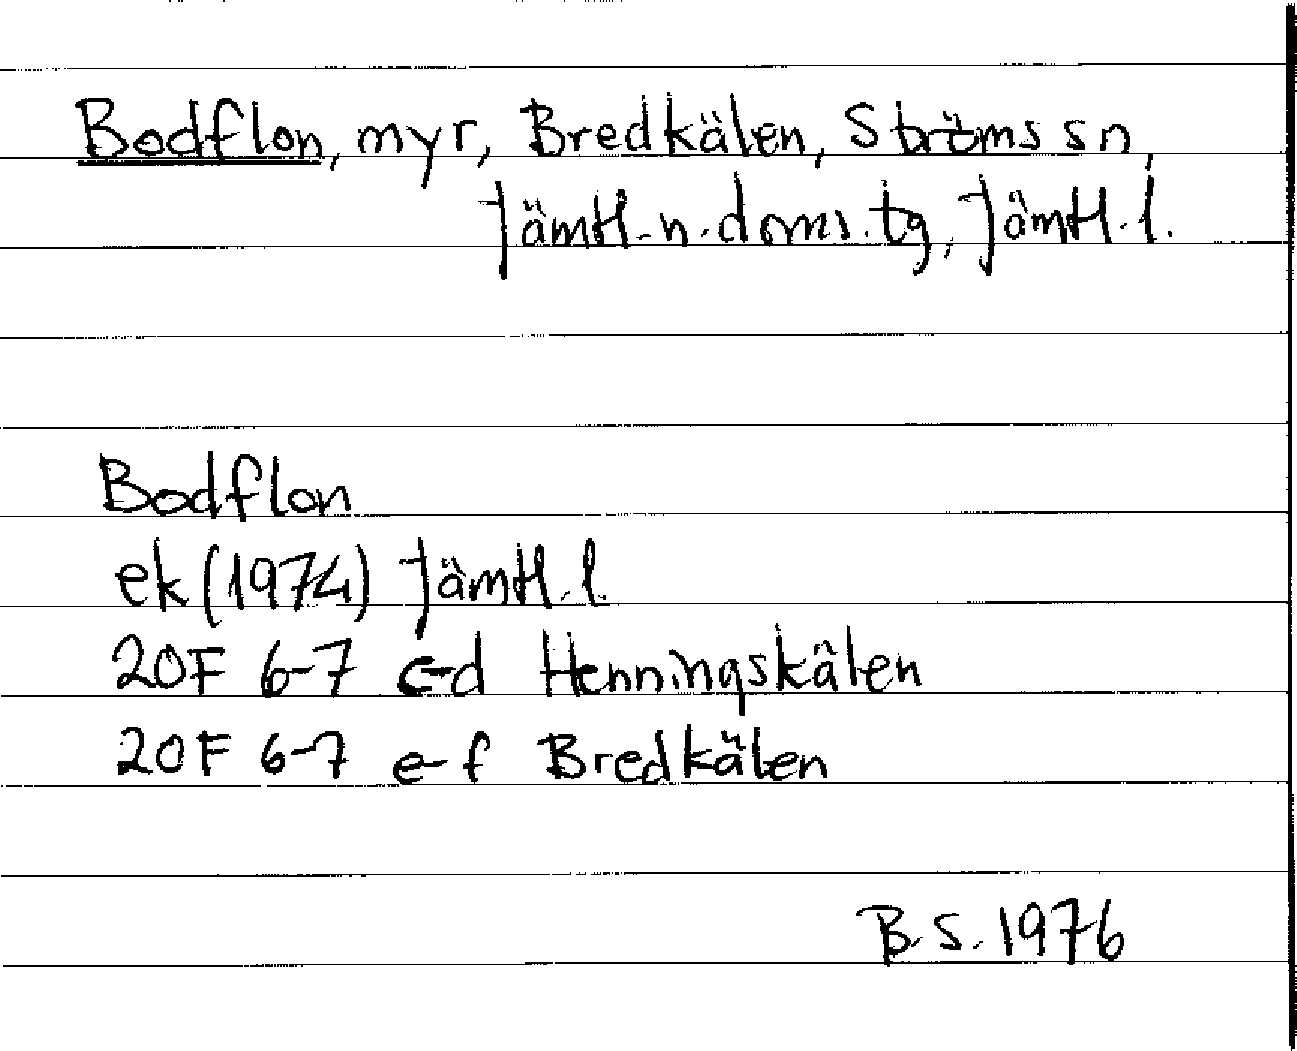 Bodflon, myr, Bredkälen, Ströms sn,
Jämtl. n. doms. tg, Jämtl. l.
Bodflon
ek (1974) Jämtl. l.
20F 6-7 c-d Henningskälen
20F 6-7 e-f Bredkälen
B.S. 1976